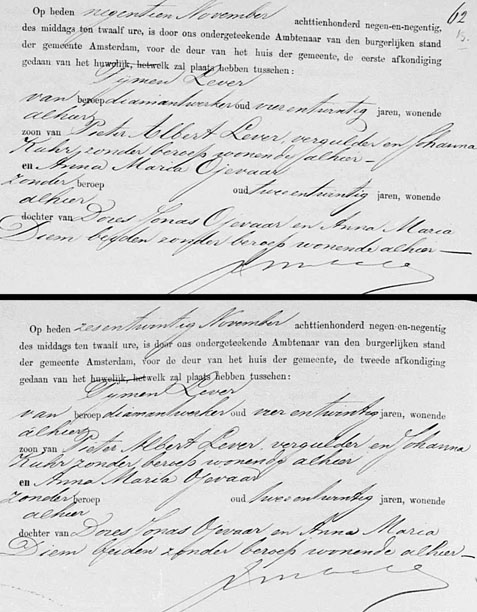 62
Op heden negentien November achttienhonderd negen-en-negentig,
des middags ten twaalf ure, is door ons ondergeteekende Ambtenaar van den burgerlijken stand
der gemeente Amsterdam, voor de deur van het huis der gemeente, de eerste afkondiging
gedaan van het huwelijk, hetwelk zal plaats hebben tusschen:
Tijmen Lever
van beroep diamantwerker oud vierentwintig jaren, wonende
alhier
zoon van Pieter Albert Lever, vergulder en Johanna
Kuhr, zonder beroep wonende alhier —
en Anna Maria Ojevaar
zonder beroep oud tweeentwintig jaren, wonende
alhier
dochter van Dores Jonas Ojevaar en Anna Maria
Diem beiden zonder beroep wonende alhier —
Op heden zesentwintig November achttienhonderd negen-en-negentig
des middags ten twaalf ure, is door ons ondergeteekende Ambtenaar van den burgerlijken stand
der gemeente Amsterdam, voor de deur van het huis der gemeente, de tweede afkondiging
gedaan van het huwelijk, hetwelk zal plaats hebben tusschen:
Tijmen Lever
van beroep diamantwerker oud vierentwintig jaren, wonende
alhier
zoon van Pieter Albert Lever, vergulder en Johanna
Kuhr zonder beroep wonende alhier
en Anna Maria Ojevaar
zonder beroep oud tweeentwintig jaren, wonende
alhier
dochter van Dores Jonas Ojevaar en Anna Maria
Diem beiden zonder beroep wonende alhier —